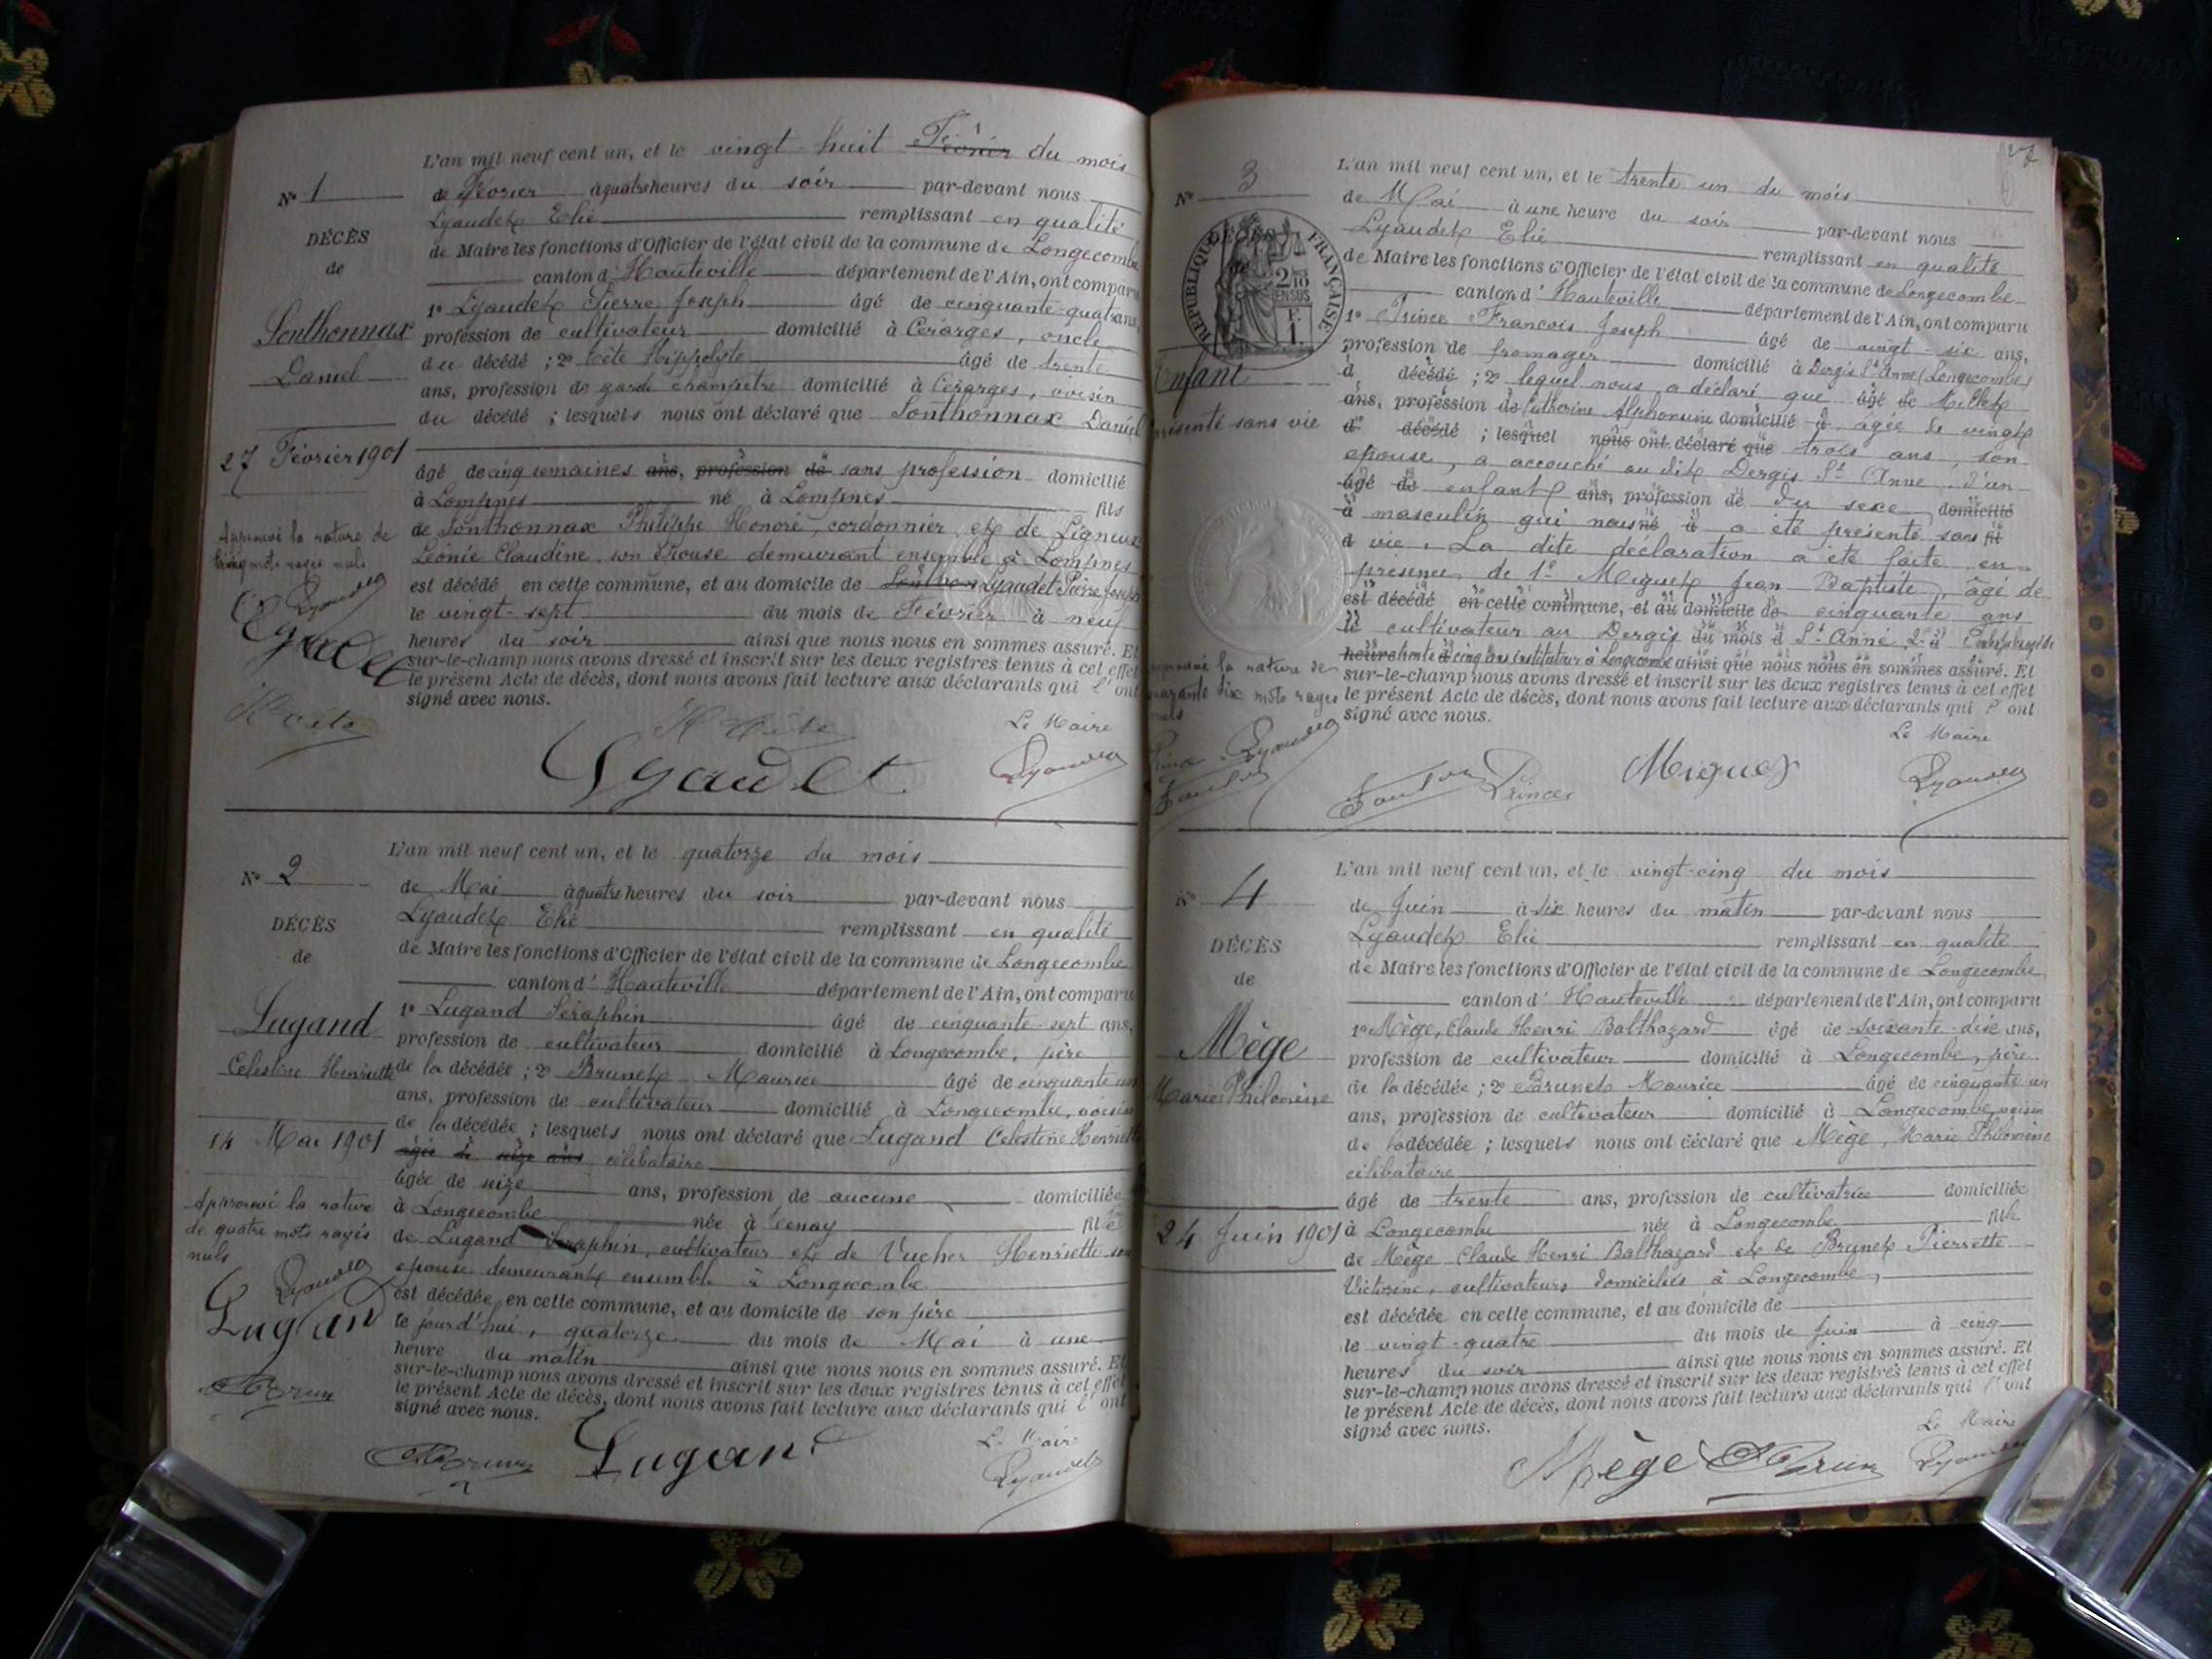 L'an mil neuf cent un, et le vingt-huit Février du mois
N° 1
de Février à quatre heures du soir par-devant nous
Lyaudet Elie remplissant en qualité
DÉCÈS
de Maire les fonctions d'Officier de l'état civil de la commune de Longecombe
de
canton d' Hauteville département de l'Ain, ont comparu
1° Lyaudet Pierre Joseph âgé de cinquante-quatre ans,
Sonthonnax
profession de cultivateur domicilié à Cérarges, oncle
Daniel
du décédé ; 2° Cête Hippolyte âgé de trente
ans, profession de garde champêtre domicilié à Cérarges, voisin
du décédé ; lesquels nous ont déclaré que Sonthonnax Daniel
27 Février 1901
âgé de cinq semaines ans, profession de sans profession domicilié
à Lompnes né à Lompnes fils
Approuvé la rature de
cinq mots rayés nuls
de Sonthonnax Philippe Honoré, cordonnier et de Ligneux
Léonie Claudine son épouse demeurant ensemble à Lompnes
est décédé en cette commune, et au domicile de Sonthon Lyaudet Pierre Joseph
le vingt-sept du mois de Février à neuf
heures du soir ainsi que nous nous en sommes assuré. Et
sur-le-champ nous avons dressé et inscrit sur les deux registres tenus à cet effet
le présent Acte de décès, dont nous avons fait lecture aux déclarants qui l'ont
signé avec nous.
Le Maire
H Cête
Lyaudet
Lyaudet
L'an mil neuf cent un, et le quatorze du mois
N° 2
de Mai à quatre heures du soir par-devant nous
Lyaudet Elie remplissant en qualité
DÉCÈS
de Maire les fonctions d'Officier de l'état civil de la commune de Longecombe
de
canton d' Hauteville département de l'Ain, ont comparu
1° Lugand Séraphin âgé de cinquante-sept ans,
Lugand
profession de cultivateur domicilié à Longecombe, père
Celestine Henriette
de la décédée ; 2° Brunet Maurice âgé de cinquante un
ans, profession de cultivateur domicilié à Longecombe, voisin
de la décédée ; lesquels nous ont déclaré que Lugand Celestine Henriette
14 Mai 1901
âgée de seize ans célibataire
âgée de seize ans, profession de aucune domiciliée
Approuvé la rature
de quatre mots rayés
nuls
à Longecombe née à fille
de Lugand Séraphin, cultivateur et de Vucher Henriette son
épouse demeurant ensemble à Longecombe
est décédée en cette commune, et au domicile de son père
le jourd'hui, quatorze du mois de Mai à une
heure du matin ainsi que nous nous en sommes assuré. Et
sur-le-champ nous avons dressé et inscrit sur les deux registres tenus à cet effet
le présent Acte de décès, dont nous avons fait lecture aux déclarants qui l'ont
signé avec nous.
Lugand
Lugand
Le Maire
Lyaudet
L'an mil neuf cent un, et le trente un du mois
N° 3
de Mai à une heure du soir par-devant nous
Lyaudet Elie remplissant en qualité
RÉPUBLIQUE FRANÇAISE
de Maire les fonctions d'Officier de l'état civil de la commune de Longecombe
canton d' Hauteville département de l'Ain, ont comparu
1° Prince François Joseph âgé de vingt-six ans,
profession de fromager domicilié à Dergis St Anne (Longecombe)
Enfant
présenté sans vie
d décédé ; 2° lequel nous a déclaré que âgé de Millet
ans, profession de Catherine Alphonsine domicilié à âgée de vingt
d décédé ; lesquel nous ont déclaré que trois ans, son
épouse, a accouché au dit Dergis St Anne d'un
âgé de enfant ans, profession de du sexe domicilié
à masculin qui nous né à a été présenté sans fil
d vie. La dite déclaration a été faite en
présence de 1° Miguet Jean Baptiste, âgé de
est décédé en cette commune, et au domicile de cinquante ans
le cultivateur au Dergis du mois d St Anne, 2° à
heure trente cinq ans instituteur à Longecombe ainsi que nous nous en sommes assuré. Et
sur-le-champ nous avons dressé et inscrit sur les deux registres tenus à cet effet
Approuvé la rature de
quarante six mots rayés
nuls
le présent Acte de décès, dont nous avons fait lecture aux déclarants qui l'ont
signé avec nous.
Le Maire
Prince
Miguet
Lyaudet
L'an mil neuf cent un, et le vingt-cinq du mois
N° 4
de Juin à six heures du matin par-devant nous
Lyaudet Elie remplissant en qualité
DÉCÈS
de Maire les fonctions d'Officier de l'état civil de la commune de Longecombe
de
canton d' Hauteville département de l'Ain, ont comparu
1° Mège, Claude Henri Balthazard âgé de soixante-dix ans,
Mège
profession de cultivateur domicilié à Longecombe, père
Marie Philomène
de la décédée ; 2° Brunet Maurice âgé de cinquante un
ans, profession de cultivateur domicilié à Longecombe voisin
de la décédée ; lesquels nous ont déclaré que Mège, Marie Philomène
célibataire
âgé de trente ans, profession de cultivatrice domiciliée
24 Juin 1901
à Longecombe née à Longecombe fille
de Mège Claude Henri Balthazard et de Brunet Pierrette
Victorine, cultivateurs domiciliés à Longecombe,
est décédée en cette commune, et au domicile de
le vingt-quatre du mois de Juin à cinq
heures du soir ainsi que nous nous en sommes assuré. Et
sur-le-champ nous avons dressé et inscrit sur les deux registres tenus à cet effet
le présent Acte de décès, dont nous avons fait lecture aux déclarants qui l'ont
signé avec nous.
Le Maire
Mège
Lyaudet